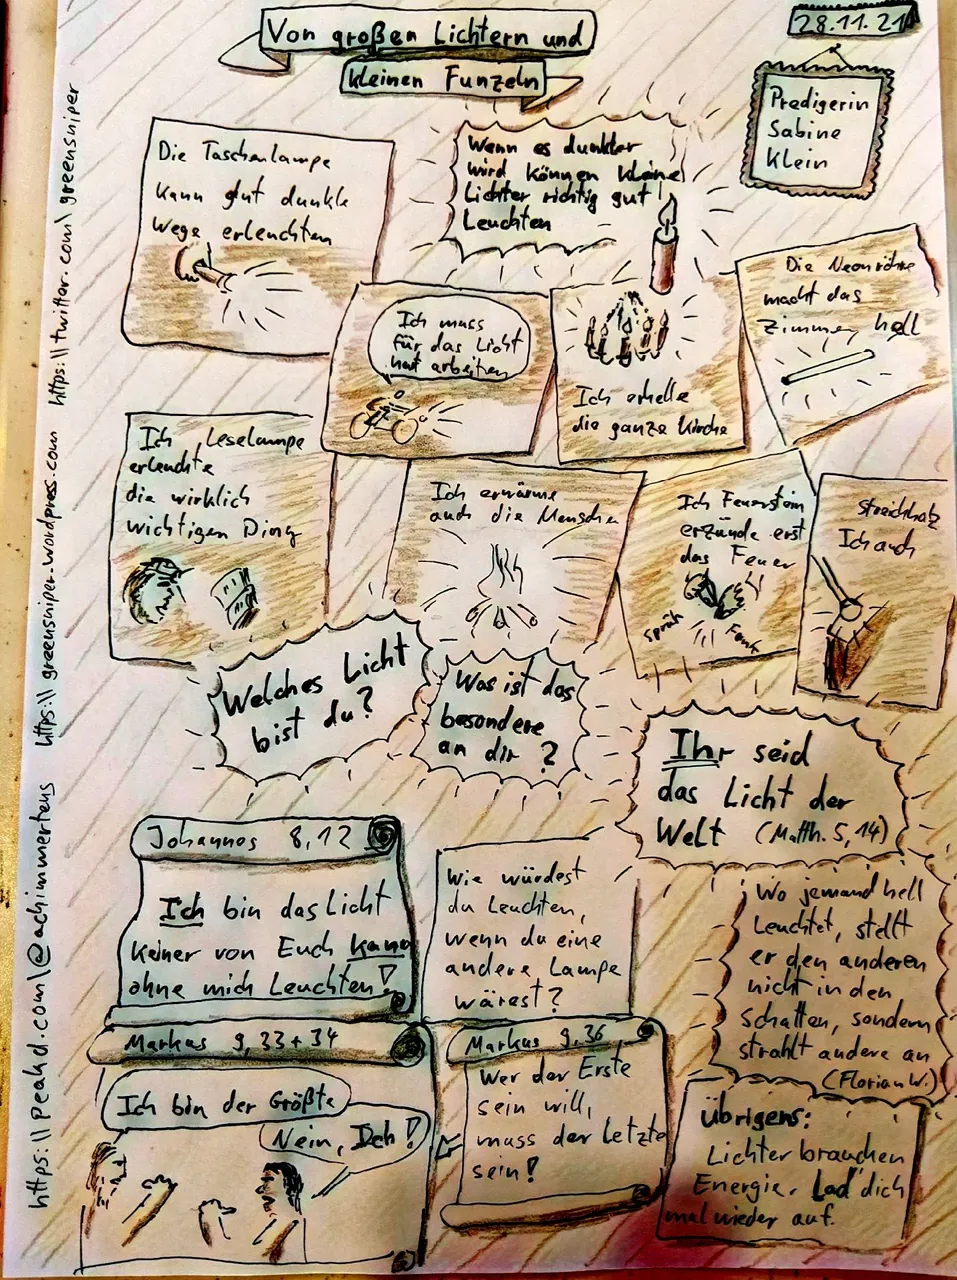 Von großen Lichtern und
kleinen Funzeln
28.11.21
Predigerin
Sabine
Klein
Die Taschenlampe
kann gut dunkle
Wege erleuchten
Wenn es dunkler
wird können kleine
Lichter richtig gut
Leuchten
Ich muss
für das Licht
hart arbeiten
Ich erhelle
die ganze Kirche
Die Neonröhre
macht das
Zimmer hell
Ich Leselampe
erleuchte
die wirklich
wichtigen Ding
Ich erwärme
auch die Menschen
Ich Feuerstein
erzünde erst
das Feuer
Sprüh
Funk
Streichholz
Ich auch
Welches Licht
bist du?
Was ist das
besondere
an dir?
Ihr seid
das Licht der
Welt (Matth. 5,14)
Johannes 8,12
Ich bin das Licht
Keiner von Euch kann
ohne mich Leuchten!
Wie würdest
du Leuchten,
wenn du eine
andere Lampe
wärest?
Wo jemand hell
Leuchtet, stellt
er den anderen
nicht in den
Schatten, sondern
strahlt andere an
(Florian W.)
Markus 9,33+34
Ich bin der Größte
Nein, Ich!
Markus 9,36
Wer der Erste
sein will,
muss der Letzte
sein!
Übrigens:
Lichter brauchen
Energie. Lad dich
mal wieder auf.
https://peakd.com/@achimmertens
https://greensniper.wordpress.com
https://twitter.com/greensniper